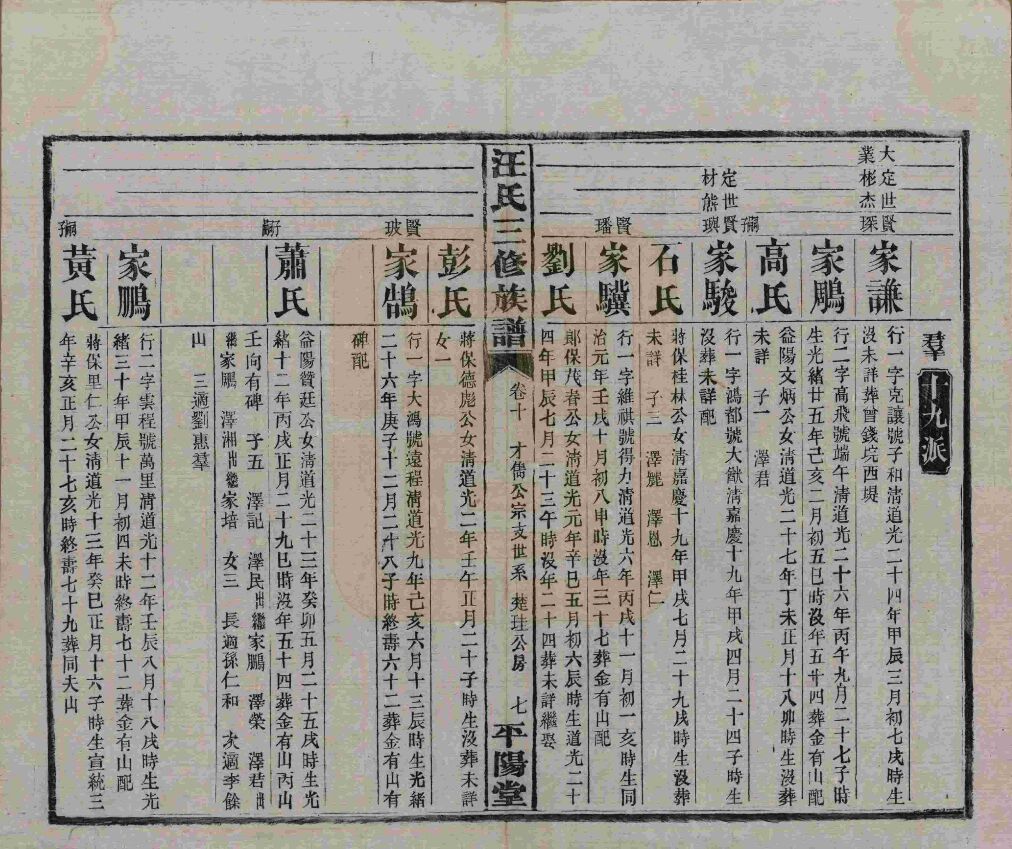 羣 十九派
大業
定彬
世杰
賢琛
家謙
行一字克讓號子和清道光二十四年甲辰三月初七戌時生
沒未詳葬曾錢垸西堤
家鵰
行二字高飛號端午清道光二十六年丙午九月二十七子時
生光緒廿五年己亥二月初五巳時沒年五十四葬金有山配
孺
高氏
益陽文炳公女清道光二十七年丁未正月十八卯時生沒葬
未詳 子一 澤君
定材
世熊
賢璵
家駿
行一字鴻都號大猷清嘉慶十九年甲戌四月二十四子時生
沒葬未詳配
石氏
蔣保桂林公女清嘉慶十九年甲戌七月二十九戌時生沒葬
未詳 子三 澤麗 澤恩 澤仁
賢璠
家驥
行一字維祺號得力清道光六年丙戌十一月初一亥時生同
治元年壬戌十月初八申時沒年三十七葬金有山配
劉氏
鄖保茂春公女清道光元年辛巳五月初六辰時生道光二十
四年甲辰七月二十三午時沒年二十四葬未詳繼娶
汪氏三修族譜 卷十 才儁公宗支世系 楚珪公房 七 平陽堂
彭氏
蔣保德彪公女清道光二年壬午正月二十子時生沒葬未詳
女一
賢玻
家鵠
行一字大鴻號遠程清道光九年己亥六月十三辰時生光緒
二十六年庚子十二月二十八子時終壽六十二葬金有山有
碑配
孺
蕭氏
益陽贊廷公女清道光二十三年癸卯五月二十五戌時生光
緒十二年丙戌正月二十九巳時沒年五十四葬金有山丙山
壬向有碑 子五 澤記 澤民出繼家鵬 澤榮 澤君出
繼家鵰 澤湘出繼家培 女三 長適孫仁和 次適李餘
山 三適劉惠羣
家鵬
行二字雲程號萬里清道光十二年壬辰八月十八戌時生光
緒三十年甲辰十一月初四未時終壽七十二葬金有山配
孺
黃氏
蔣保里仁公女清道光十三年癸巳正月十六子時生宣統三
年辛亥正月二十七亥時終壽七十九葬同夫山